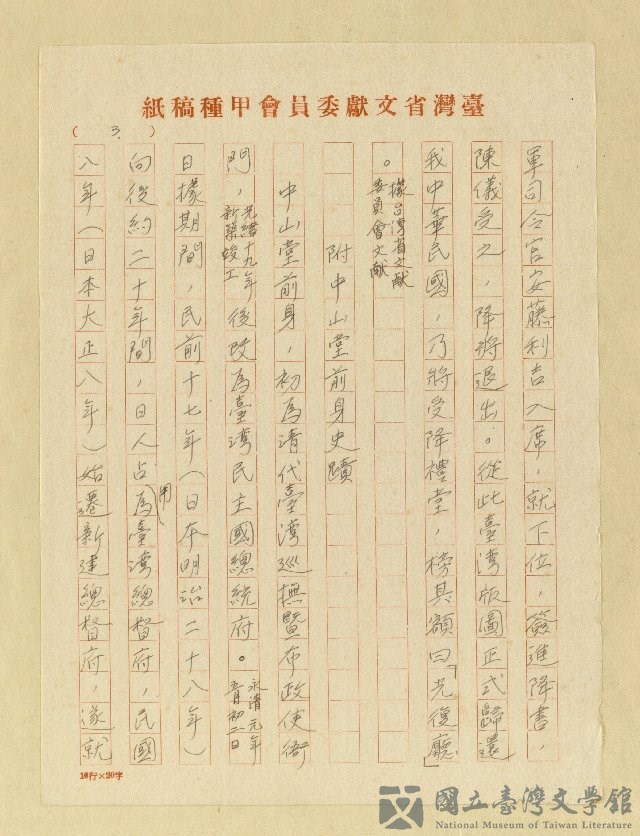 臺灣省文獻委員會甲種稿紙
( 3. )
軍司令官安藤利吉入席，就下位，簽進降書，
陳儀受之，降將退出。從此臺灣版圖正式歸還
我中華民國，乃將受降禮堂，榜其額曰「光復廳」
。據台灣省文獻
委員會文獻
附中山堂前身史蹟
中山堂前身，初為清代臺灣巡撫暨布政使衙
門，光緒十九年
新築竣工後改為臺灣民主國總統府。永清元年
五月初二日
日據期間，民前十七年（日本明治二十八年）
向後約二十年間，日人占用為臺灣總督府，民國
八年（日本大正八年）始遷新建總督府，遂就
10行×20字
國立臺灣文學館
National Museum of Taiwan Literature